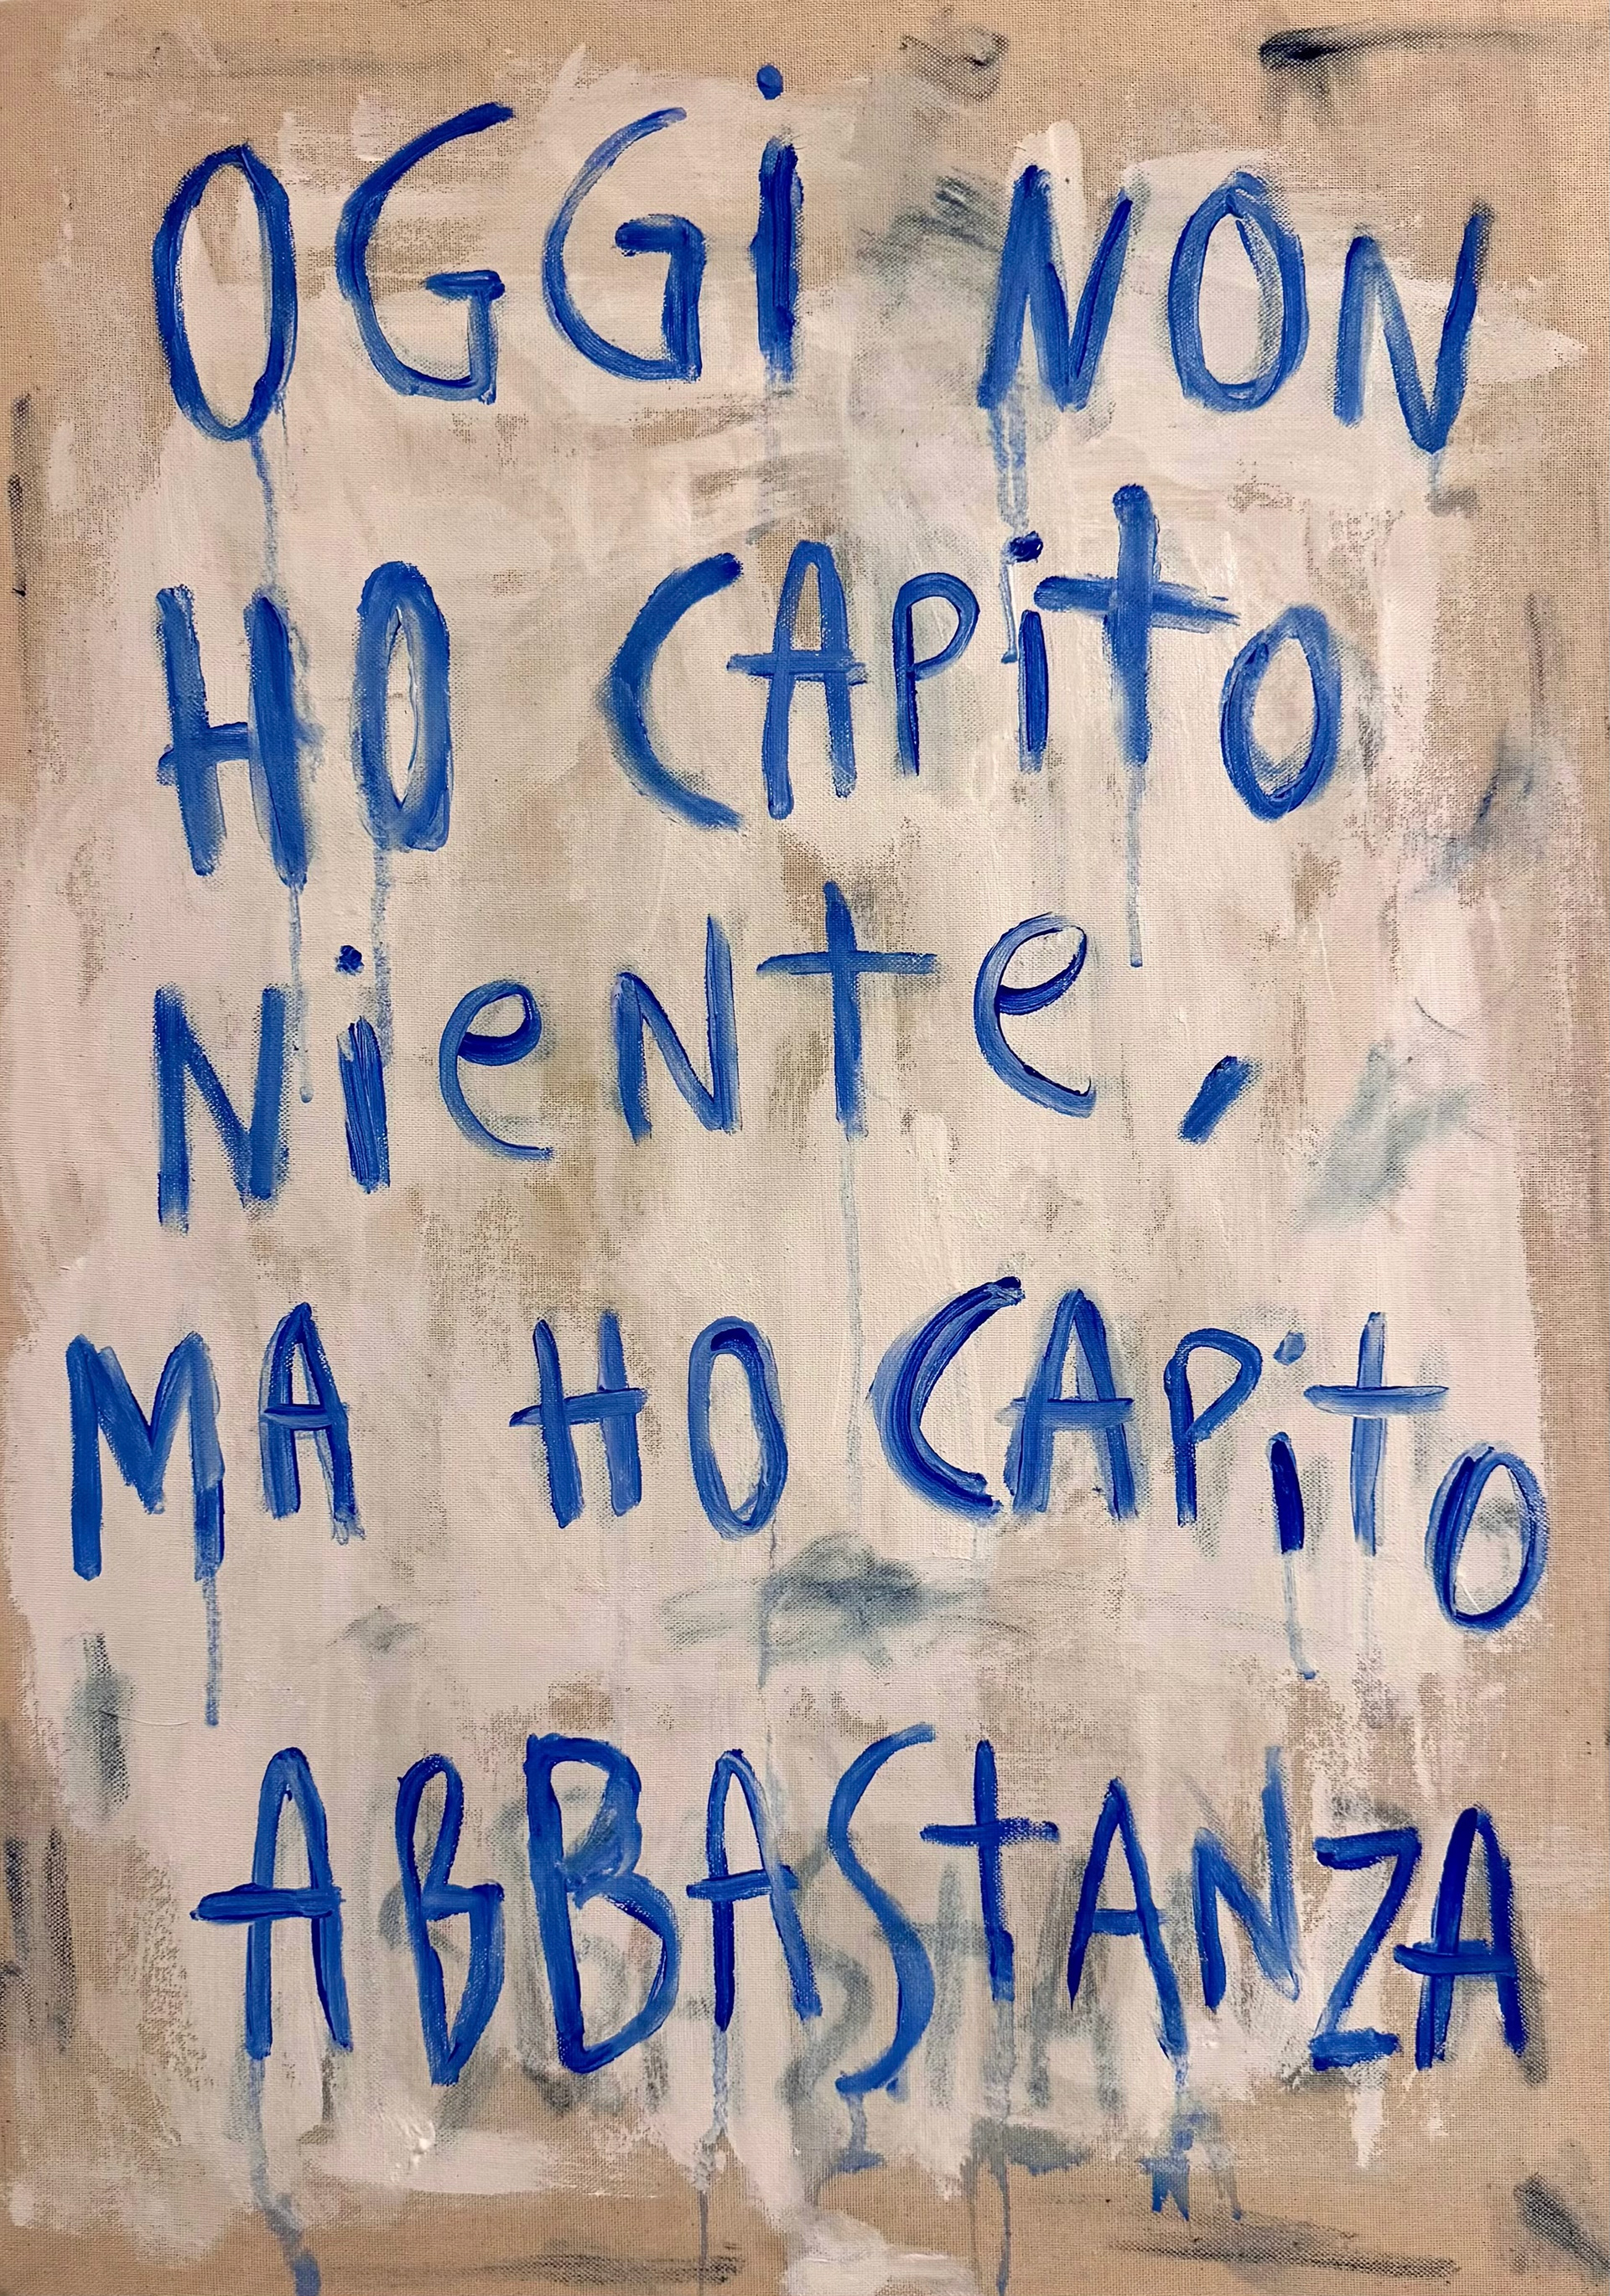 OGGi NON
HO CAPitO
NieNte,
MA HO CAPitO
ABBAStANZA